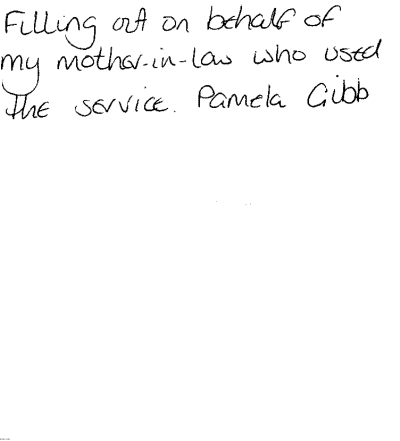 Filling out on behalf of
my mother-in-law who used
the service. Pamela Gibb